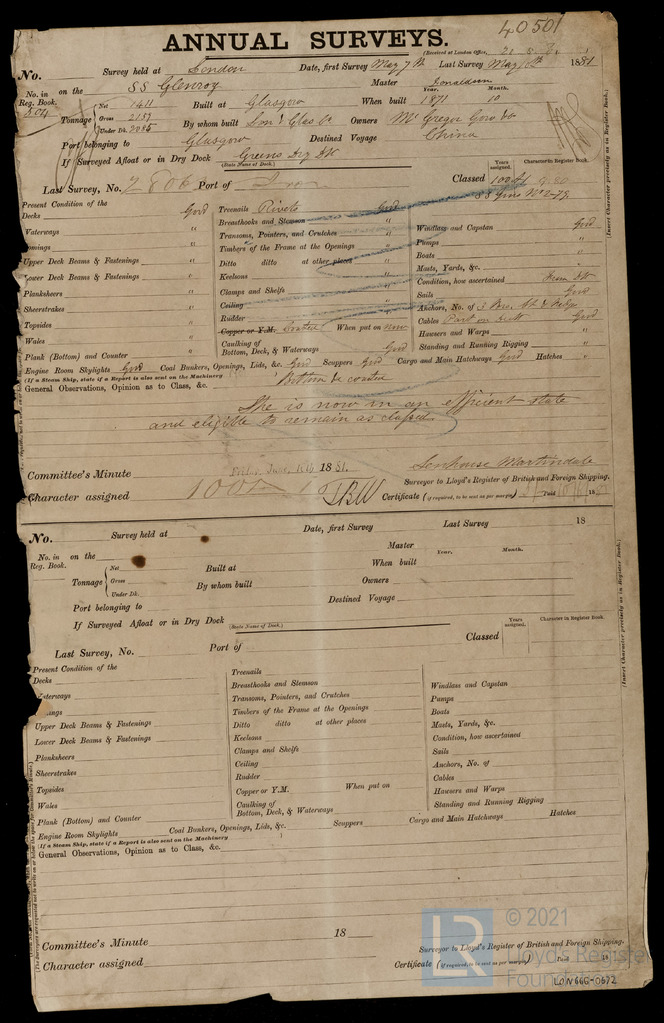 40501
ANNUAL SURVEYS.
(Received at London Office,
No. Survey held at London Date, first Survey May 7th Last Survey May 1881
No. in Reg. Book. on the SS Glenroy Master Donaldson
504 Tonnage Net 1411 Gross 2187 Under Dk. 2085 Built at Glasgow When built Year. 1871 Month. 10
By whom built Lon & Glas Co Owners McGregor Gow & Co
Port belonging to Glasgow Destined Voyage China
If Surveyed Afloat or in Dry Dock Greens Dry Dk
(State Name of Dock.)
Years assigned. Character in Register Book.
Last Survey, No. Port of Classed 100A1
SS Gms No 2-79
(Insert Character precisely as in Register Book.)
Present Condition of the
Decks Good
Waterways "
Upper Deck Beams & Fastenings "
Lower Deck Beams & Fastenings "
Planksheers "
Sheerstrakes "
Topsides "
Wales "
Plank (Bottom) and Counter "
Treenails Rivets Good
Breasthooks and Stemson "
Transoms, Pointers, and Crutches "
Timbers of the Frame at the Openings "
Ditto ditto at other places "
Keelsons "
Clamps and Shelfs "
Ceiling "
Rudder "
Copper or Y.M. Coated When put on now
Caulking of Bottom, Deck, & Waterways Good
Windlass and Capstan Good
Pumps "
Boats "
Masts, Yards, &c. "
Condition, how ascertained From Dk
Sails Good
Anchors, No. of 3 Bow, St & Kedge
Cables Part on deck Good
Hawsers and Warps "
Standing and Running Rigging "
Engine Room Skylights Good Coal Bunkers, Openings, Lids, &c. Good Scuppers Good Cargo and Main Hatchways Good Hatches "
(If a Steam Ship, state if a Report is also sent on the Machinery
General Observations, Opinion as to Class, &c. Bottom &c coated
She is now in an efficient state
and eligible to remain as classed.
Committee's Minute Friday June 1881.
Senhouse Martindale
Surveyor to Lloyd's Register of British and Foreign Shipping.
Character assigned 100A1
Certificate (if required, to be sent as per margin)
No. Survey held at Date, first Survey Last Survey 18
No. in Reg. Book. on the Master
Tonnage Net Gross Under Dk. Built at When built Year. Month.
By whom built Owners
Port belonging to Destined Voyage
If Surveyed Afloat or in Dry Dock
(State Name of Dock.)
Years assigned. Character in Register Book.
Last Survey, No. Port of Classed
(Insert Character precisely as in Register Book.)
Present Condition of the
Decks
Upper Deck Beams & Fastenings
Lower Deck Beams & Fastenings
Planksheers
Sheerstrakes
Topsides
Wales
Plank (Bottom) and Counter
Treenails
Breasthooks and Stemson
Transoms, Pointers, and Crutches
Timbers of the Frame at the Openings
Ditto ditto at other places
Keelsons
Clamps and Shelfs
Ceiling
Rudder
Copper or Y.M. When put on
Caulking of Bottom, Deck, & Waterways
Windlass and Capstan
Pumps
Boats
Masts, Yards, &c.
Condition, how ascertained
Sails
Anchors, No. of
Cables
Hawsers and Warps
Standing and Running Rigging
Engine Room Skylights Coal Bunkers, Openings, Lids, &c. Scuppers Cargo and Main Hatchways Hatches
(If a Steam Ship, state if a Report is also sent on the Machinery
General Observations, Opinion as to Class, &c.
Committee's Minute 18
Surveyor to Lloyd's Register of British and Foreign Shipping.
Character assigned
Certificate (if required, to be sent as per margin) Paid 18
LR © 2021
Lloyd's Register
Foundation
LON666-0572